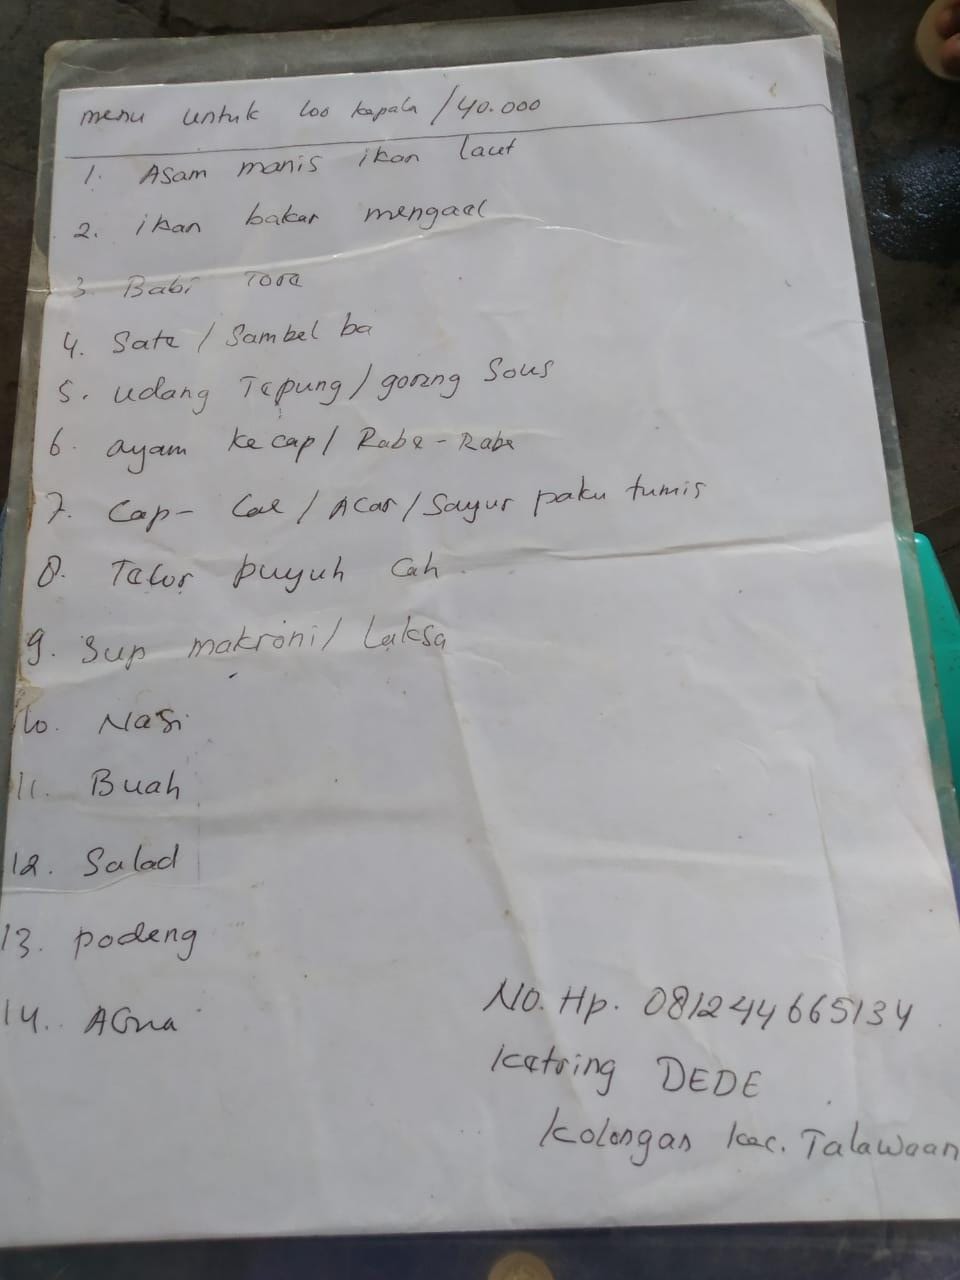 menu untuk 100 kepala / 40.000
1. Asam manis ikan laut
2. ikan bakar mengael
3. Babi Tora
4. Sate / Sambel ba
5. udang Tepung / goreng Sous
6. ayam kecap / Rabe - Rabe
7. Cap - Cae / Acar / Sayur paku tumis
8. Telor puyuh Cah
9. Sup makroni / Laksa
10. Nasi
11. Buah
12. Salad
13. podeng
14. AQua
NO. Hp. 081244665134
Katring DEDE
Kolongan Kec. Talawaan